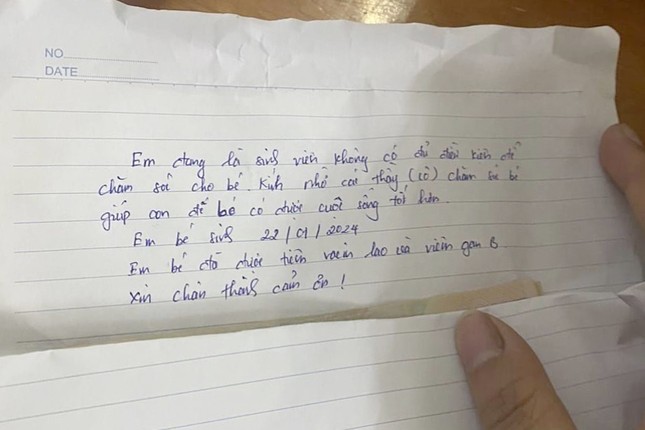 NO
DATE
Em đang là sinh viên không có đủ điều kiện để
chăm sóc cho bé. Kính nhờ các thầy (cô) chăm sóc bé
giúp con để bé có được cuộc sống tốt hơn.
Em bé sinh 22/01/2024
Em bé đã được tiêm vacin lao và viên gan B.
Xin chân thành cảm ơn!